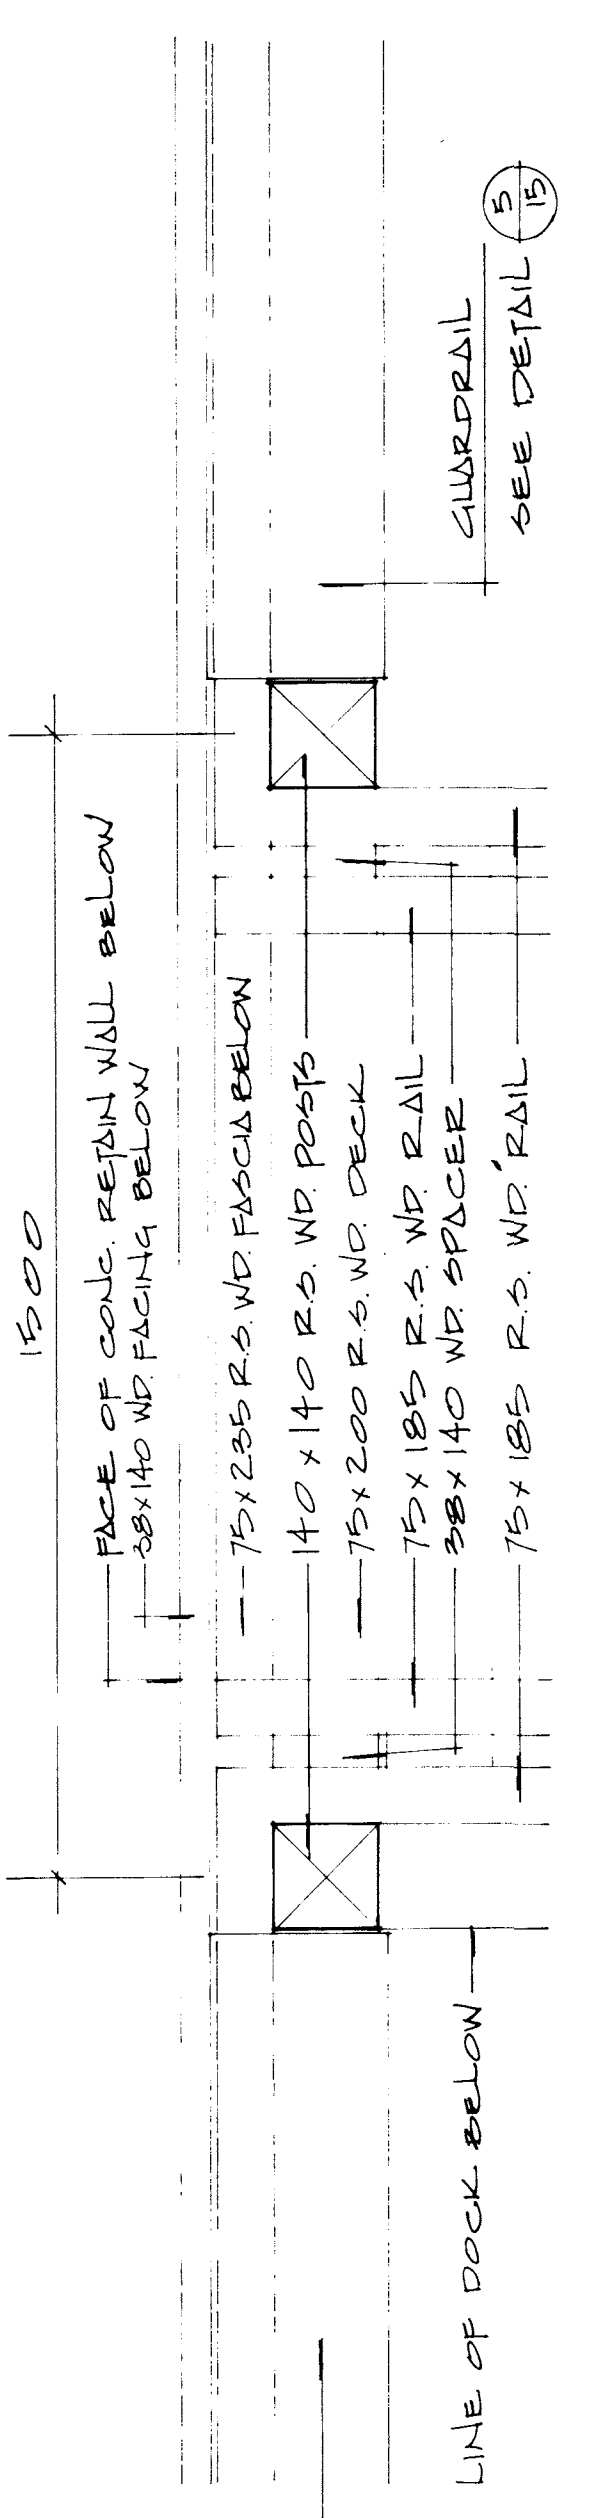 1500
FACE OF CONC. RETAIN WALL BELOW
38x140 WD. FACING BELOW
75x235 R.S. WD. FASCIA BELOW
140 x 140 R.S. WD. POSTS
75x200 R.S. WD. DECK
75x185 R.S. WD. RAIL
38x140 WD. SPACER
75x185 R.S. WD. RAIL
LINE OF DOCK BELOW
GUARDRAIL
SEE DETAIL
5
15